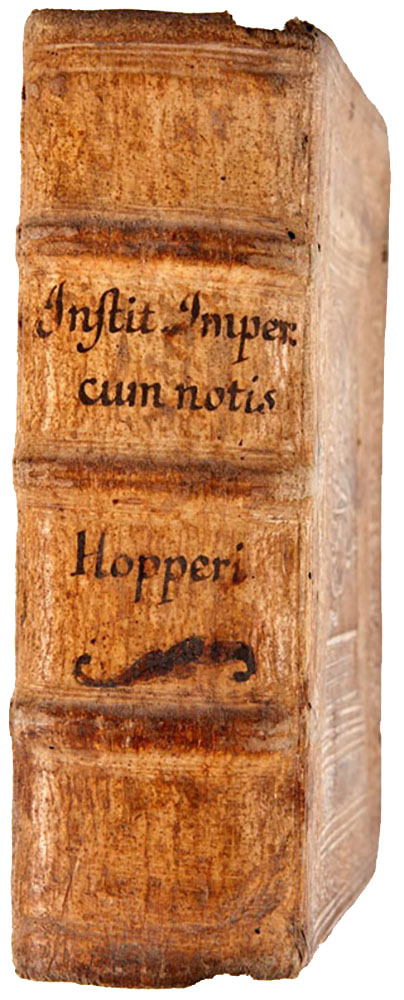 Inſtit Imper:
cum notis
Hopperi